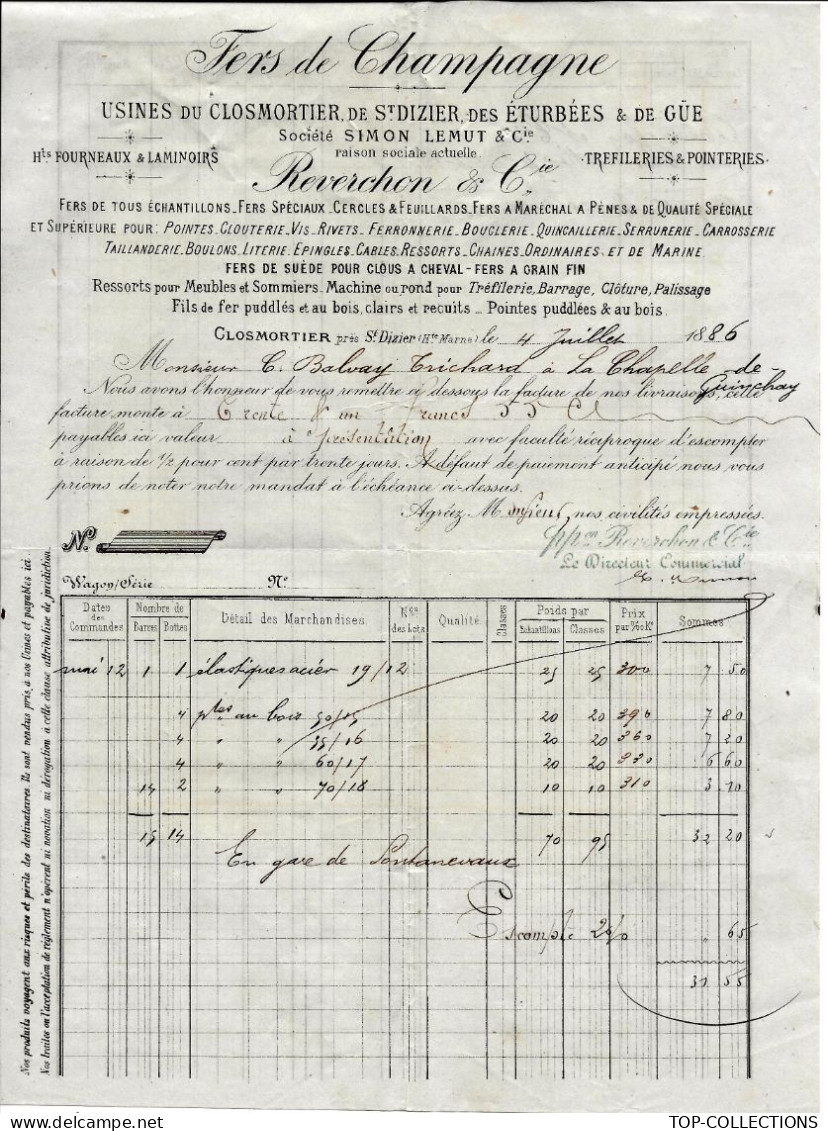 Fers de Champagne
USINES DU CLOSMORTIER, DE ST DIZIER, DES ÉTURBÉES & DE GÜE
Société SIMON LEMUT & Cie
Hts FOURNEAUX & LAMINOIRS
raison sociale actuelle
TREFILERIES & POINTERIES
Reverchon & Cie
FERS DE TOUS ÉCHANTILLONS_FERS SPÉCIAUX_CERCLES & FEUILLARDS_FERS A MARÉCHAL A PÈNES & DE QUALITÉ SPÉCIALE
ET SUPÉRIEURE POUR: POINTES_CLOUTERIE_VIS_RIVETS_FERRONNERIE_BOUCLERIE_QUINCAILLERIE_SERRURERIE_CARROSSERIE
TAILLANDERIE_BOULONS_LITERIE_EPINGLES_CABLES_RESSORTS_CHAINES_ORDINAIRES_ET DE MARINE
FERS DE SUÈDE POUR CLOUS A CHEVAL - FERS A GRAIN FIN
Ressorts pour Meubles et Sommiers_Machine ou rond pour Tréfilerie, Barrage, Clôture, Palissage
Fils de fer puddlés et au bois, clairs et recuits _ Pointes puddlées & au bois
CLOSMORTIER près St Dizier (Hte Marne) le 4 Juillet 1886
Monsieur C. Balvay Trichard à La Chapelle-de-Guinchay
Nous avons l'honneur de vous remettre ci dessous la facture de nos livraisons, cette
facture monte à Trente & un francs 55 Ct
payables ici valeur à présentation avec faculté réciproque d'escompter
à raison de 1/2 pour cent par trente jours. A défaut de paiement anticipé nous vous
prions de noter notre mandat à l'échéance ci-dessus.
Agréez, Monsieur, nos civilités empressées.
No
p/pon Reverchon & Cie
Le Directeur Commercial
Wagon/Série No
Dates des Commandes Nombre de Barres Bottes Détail des Marchandises Nos des Lots Qualité Classes Poids par Echantillons Classes Prix par % Ko Sommes
mai 12 1 1 élastiques acier 19/12 25 25 300 7 50
4 ptes au bois 50/15 20 20 390 7 80
4 " " 55/16 20 20 360 7 20
4 " " 60/17 20 20 330 6 60
14 2 " " 70/18 10 10 310 3 10
15 14 70 95 32 20
En gare de Pontanevaux
Escompte 2% " 65
31 55
Nos produits voyagent aux risques et périls des destinataires. Ils sont vendus pris à nos Usines et payables ici.
Nos traites ou l'acceptation de règlement n'opèrent ni novation ni dérogation à cette clause attributive de juridiction.
TOP-COLLECTIONS